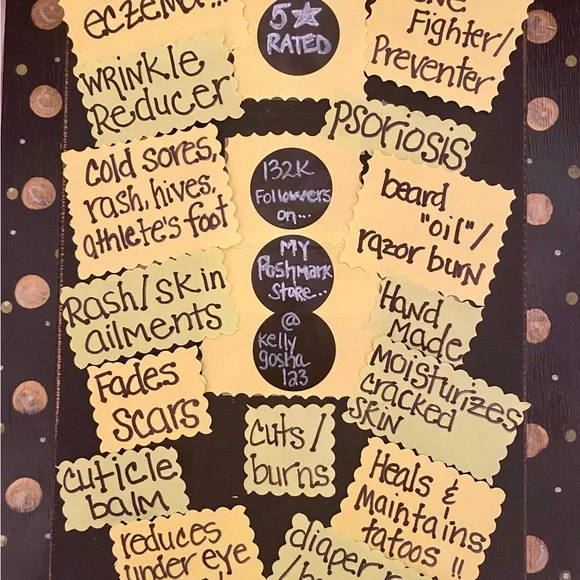 eczema...
5★
RATED
Fighter/
Preventer
WRINKLE
Reducer
PSORIOSIS
cold sores,
rash, hives,
athlete's foot
132K
Followers
on...
beard
"oil"/
razor burn
MY
Poshmark
Store...
Rash/skin
ailments
Hand
Made
@
kelly
gosha
123
Fades
Scars
Moisturizes
cracked
SKIN
cuts/
burns
cuticle
balm
Heals &
Maintains
tatoos !!
reduces
under eye
diaper